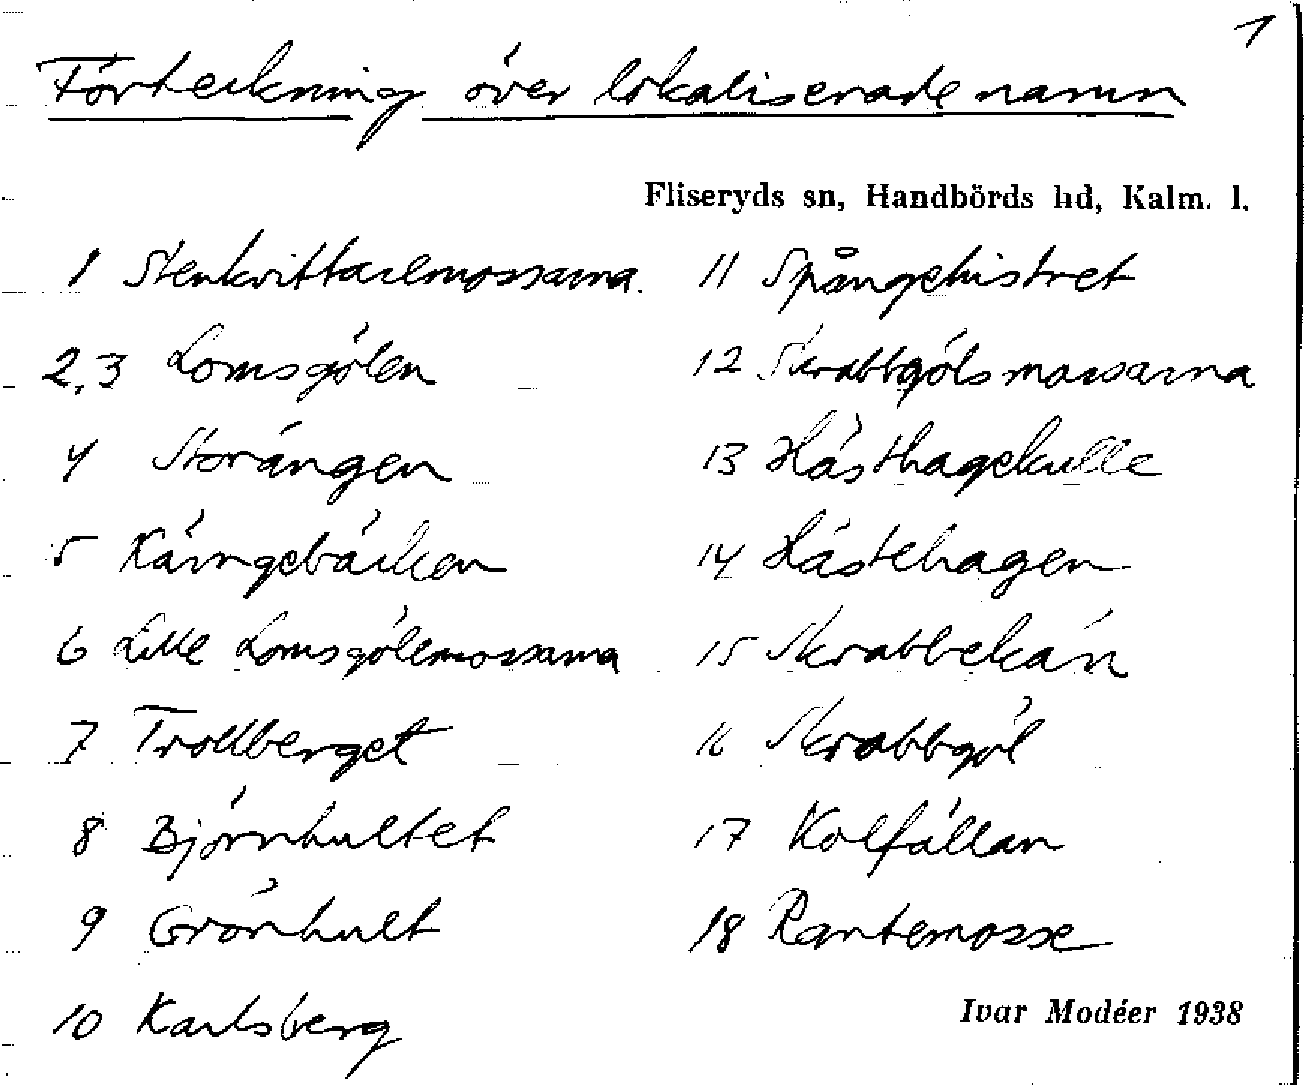 1
Förteckning över lokaliserade namn
Fliseryds sn, Handbörds hd, Kalm. l.
1 Stenkvittaremossarna.
2,3 Lomsgölen
4 Storängen
5 Käringebäcken
6 Lille Lomsgölemossarna
7 Trollberget
8 Björnhultet
9 Grönhult
10 Karlsberg
11 Spångehistret
12 Skrabbgölsmossarna
13 Hästhagekulle
14 Hästehagen
15 Skrabbekärr
16 Skrabbgöl
17 Kolfällan
18 Rantemosse
Ivar Modéer 1938